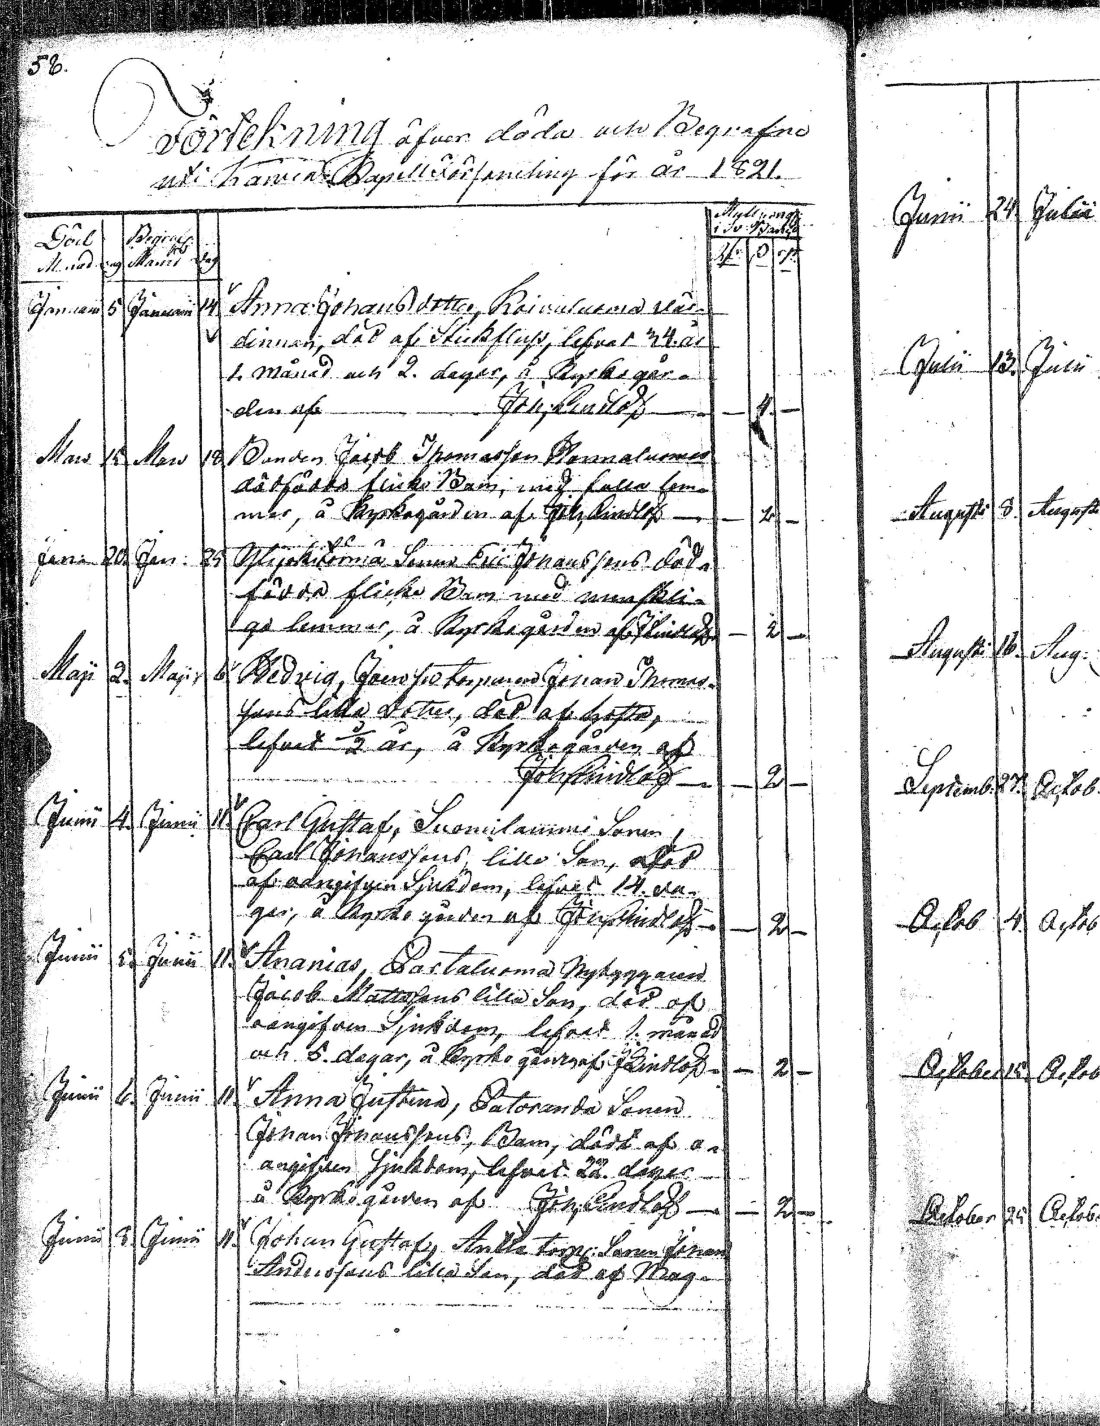 58.
Förtekning öfver döda och Begrafne
uti Kapell Församling för år 1821.
Död Månad dag Begrafne Månad dag
Rdr ß rst
Januari 5 Januari 14 Anna Johans dotter, Koivuluoma vär-
dinnan, död af Stickfluss, lefvat 34. år
1. Månad och 2. dagar, å Kyrkogår-
den af Joh. Lindlöf — 4 —
Mars 15 Mars 18 Bonden Jacob Thomasson
dödfödda flicke Barn, med fulla lem-
mar, å Kyrkogården af Joh. Lindlöf — 2 —
20 25 Sonen Eric Johanssons död-
födda flicke Barn med menskli-
ga lemmar, å Kyrkogården af J. Lindlöf — 2 —
Maji 2. Maji 6 Hedvig, Johan Thomas-
sons lilla dotter, död af hosta,
lefvat ½ år, å Kyrkogården af
Joh. Lindlöf — 2 —
Junii 4. Junii 11. Carl Gustaf, Suomilammi Sonen,
Carl Johanssons lilla Son, död
af oangifven Sjukdom, lefvat 14. da-
gar, å Kyrkogården af Joh. Lindlöf — 2 —
Junii 5. Junii 11. Ananias, Partaluoma Nybyggaren
Jacob Mattssons lilla Son, död af
oangifven Sjukdom, lefvat 1. månad
och 5. dagar, å Kyrkogården af J. Lindlöf — 2 —
Junii 6. Junii 11. Anna Justina, Patoranda Sonen
Johan Johanssons, Barn, dödt af o-
angifven Sjukdom, lefvat 22. dagar
å Kyrkogården af Joh. Lindlöf — 2 —
Junii 8. Junii 11. Johan Gustaf, Anttila torp: Sonen Johan
Anderssons lilla Son, död af Mag-
Junii 24. Julii
Julii 13. Julii
Augusti 8. Augusti
Augusti 16. Aug:
Septemb. 27. Octob.
Octob 4 Octob
October 15. Octob
October 25 Octob.